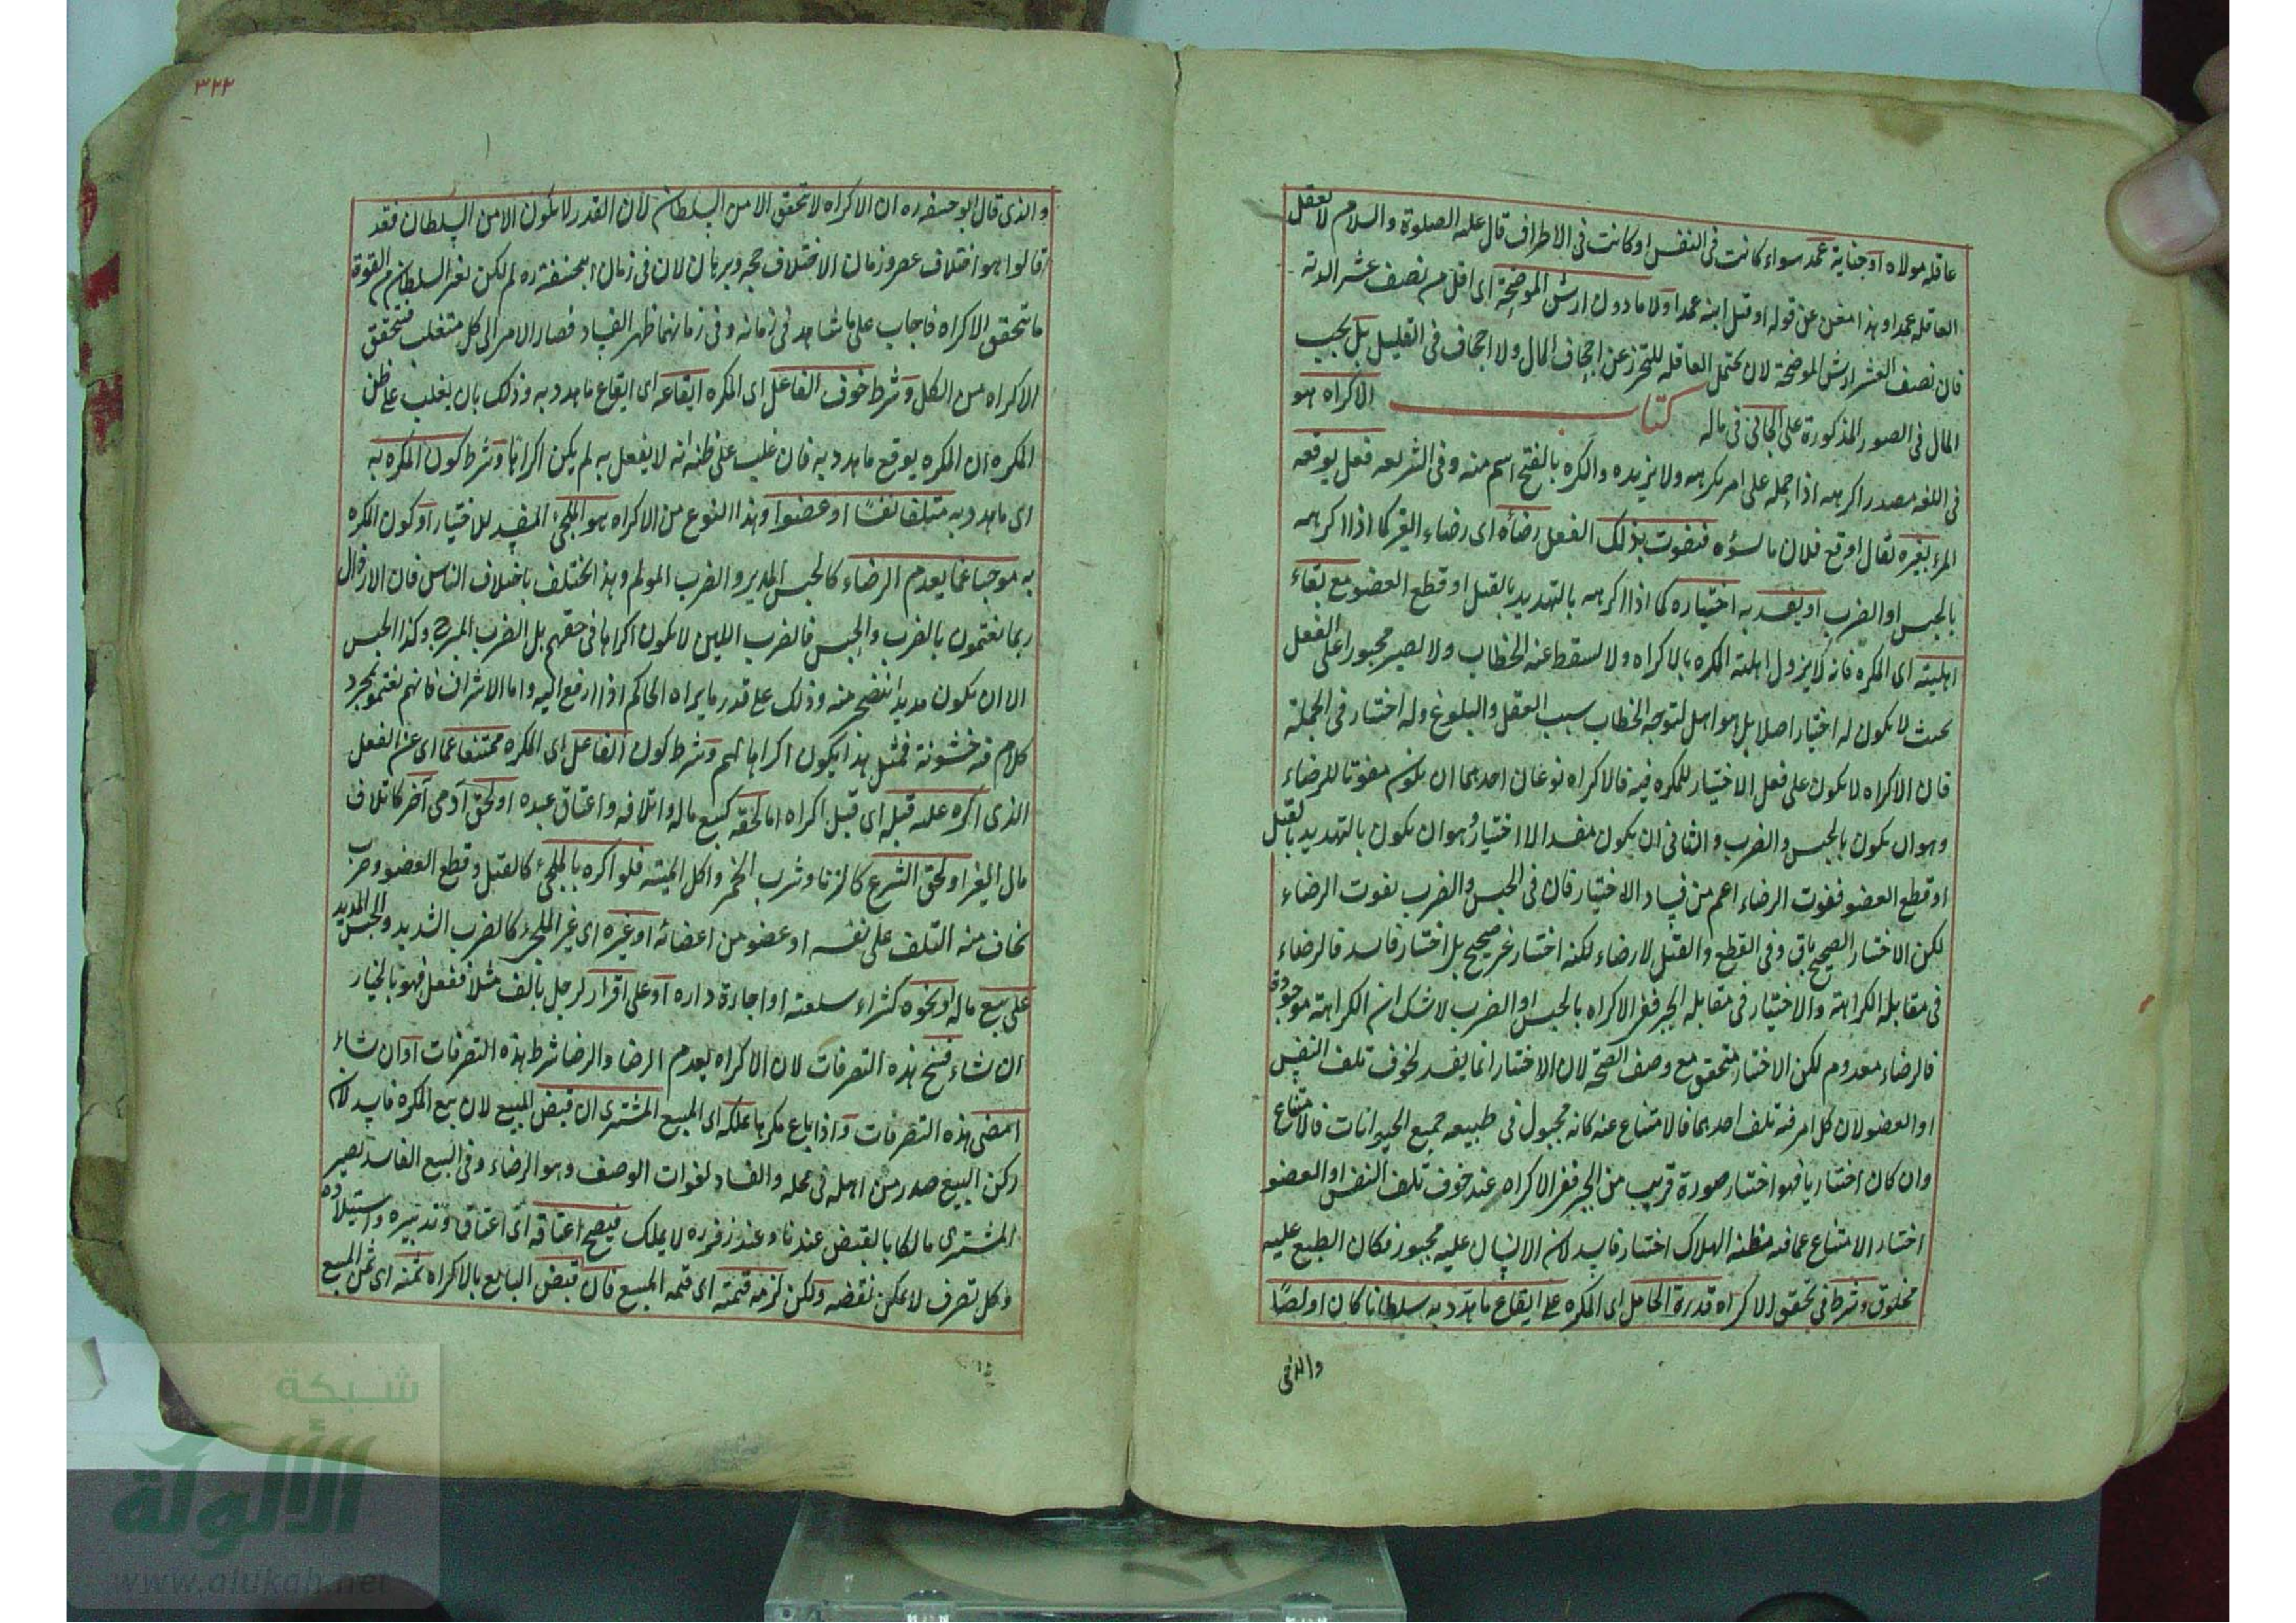 عاقله مولاه او جناية عمد سواء كانت فى النفس او كانت فى الاطراف قال عليه الصلوة والسلام لا تعقل
العاقله عمدا وهذا مغن عن قوله او قتل ابنه عمدا ولا ما دون ارش الموضحة اى اقل من نصف عشر الدية
فان نصف العشر ارش الموضحة لان تحمل العاقله للتحرز عن اجحاف المال ولا اجحاف فى القليل بل يجب
المال فى الصور المذكورة على الجانى فى ماله كتاب الاكراه هو
فى اللغه مصدر اكرهه اذا حمله على امر يكرهه ولا يريده والكره بالفتح اسم منه وفى الشريعه فعل يوقعه
المرء بغيره يقال اوقع فلان ما يسؤه فيفوت بذلك الفعل رضاه اى رضاء الغير كما اذا اكرهه
بالحبس او الضرب او يفسد به اختياره كما اذا اكرهه بالتهديد بالقتل او قطع العضو مع بقاء
اهليته اى المكره فانه لا يزول اهلية المكره بالاكراه ولا يسقط عنه الخطاب ولا يصير مجبورا على الفعل
بحيث لا يكون له اختيار اصلا بل هو اهل لتوجه الخطاب بسبب العقل والبلوغ وله اختيار فى الجملة
فان الاكراه لا يكون على فعل الا اختيار للمكره فيه فالاكراه نوعان احدهما ان يكون مفوتا للرضاء
وهو ان يكون بالحبس والضرب والثانى ان يكون مفسد الا اختيار وهو ان يكون بالتهديد بالقتل
او قطع العضو ففوت الرضاء اعم من فساد الاختيار فان فى الحبس والضرب يفوت الرضاء
لكن الاختيار الصحيح باق وفى القطع والقتل لا رضاء لكنه اختيار غير صحيح بل اختيار فاسد فالرضاء
فى مقابلة الكراهة والاختيار فى مقابله الجبر ففى الاكراه بالحبس او الضرب لا شك ان الكراهة موجودة
فالرضاء معدوم لكن الاختيار متحقق مع وصف الصحة لان الاختيار انما يفسد لخوف تلف النفس
او العضو لان كل امر فيه تلف احدهما فالامتناع عنه كانه مجبول فى طبيعه جميع الحيوانات فالامتناع
وان كان اختياريا فهو اختيار صورة قريب من الجبر ففى الاكراه عند خوف تلف النفس او العضو
اختيار الامتناع عما فيه مظنه الهلاك اختيار فاسد لان الانسان عليه مجبور فكان الطبع عليه
مخلوق وشرط فى تحقق الاكراه قدرة الحامل اى المكره على ايقاع ما هدد به سلطانا كان او لصا
والذى
٣٢٢
والذى قال ابو حنيفه ره ان الاكراه لا تحقق الا من السلطان لان القدر لا يكون الا من السلطان فقد
قالوا هو اختلاف عصر وزمان لا اختلاف حجة وبرهان لان فى زمان ابيحنيفة ره لم يكن لغير السلطان من القوة
ما يتحقق الاكراه فاجاب على ما شاهد فى زمانه وفى زمانهما ظهر الفساد فصار الامر الى كل متغلب فيتحقق
الاكراه من الكل وشرط خوف الفاعل اى المكره ايقاعه اى ايقاع ما هدد به وذلك بان يغلب على ظن
المكره ان المكره يوقع ما هدد به فان غلب على ظنه انه لا يفعل به لم يكن اكراها وشرط كون المكره به
اى ما هدد به متلفا نفسا او عضوا وهذا النوع من الاكراه هو الملجئ المفسد للاختيار او كون المكره
به موجبا غما يعدم الرضاء كالحبس المديد والضرب المولم وهذا يختلف باختلاف الناس فان الارذال
ربما يغتمون بالضرب والحبس فالضرب اللين لا يكون اكراها فى حقهم بل الضرب المبرح وكذا الحبس
الا ان يكون مديدا يتضجر منه وذلك على قدر ما يراه الحاكم اذا رفع اليه واما الاشراف فانهم يغتمون بمجرد
كلام فيه خشونة فمثل هذا يكون اكراها لهم وشرط كون الفاعل اى المكره ممتنعا عما اى عن الفعل
الذى اكره عليه قبله اى قبل اكراه اما لحقه كبيع ماله واتلافه واعتاق عبده او لحق آدمى آخر كاتلاف
مال الغير او لحق الشرع كالزنا وشرب الخمر واكل الميتة فلو اكره بالملجئ كالقتل وقطع العضو وضرب
يخاف منه التلف على نفسه او عضو من اعضائه او غيره اى غير الملجئ كالضرب الشديد والحبس المديد
على بيع ماله او نحوه كشراء سلعته او اجارة داره او على اقرار لرجل بالف مثلا ففعل فهو بالخيار
ان شاء فسخ هذه التصرفات لان الاكراه يعدم الرضا والرضا شرط هذه التصرفات او ان شاء
امضى هذه التصرفات واذا باع مكرها ملكه اى المبيع المشترى ان قبض المبيع لان بيع المكره فاسد لان
ركن البيع صدر من اهله فى محله والفساد لفوات الوصف وهو الرضاء وفى البيع الفاسد يصير
المشترى مالكا بالقبض عندنا وعند زفر ره لا يملك فيصح اعتاقه اى اعتاق وتدبيره واستيلاده
وكل تصرف لا يمكن نقضه ولكن لزمه قيمته اى قيمه المبيع فان قبض البايع بالاكراه ثمنه اى ثمن المبيع
شبكة
الألوكة
www.alukah.net